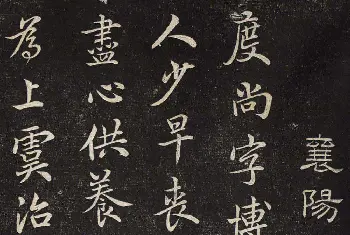 襄陽
度尚字博
人少早喪
盡心供養
為上虞治